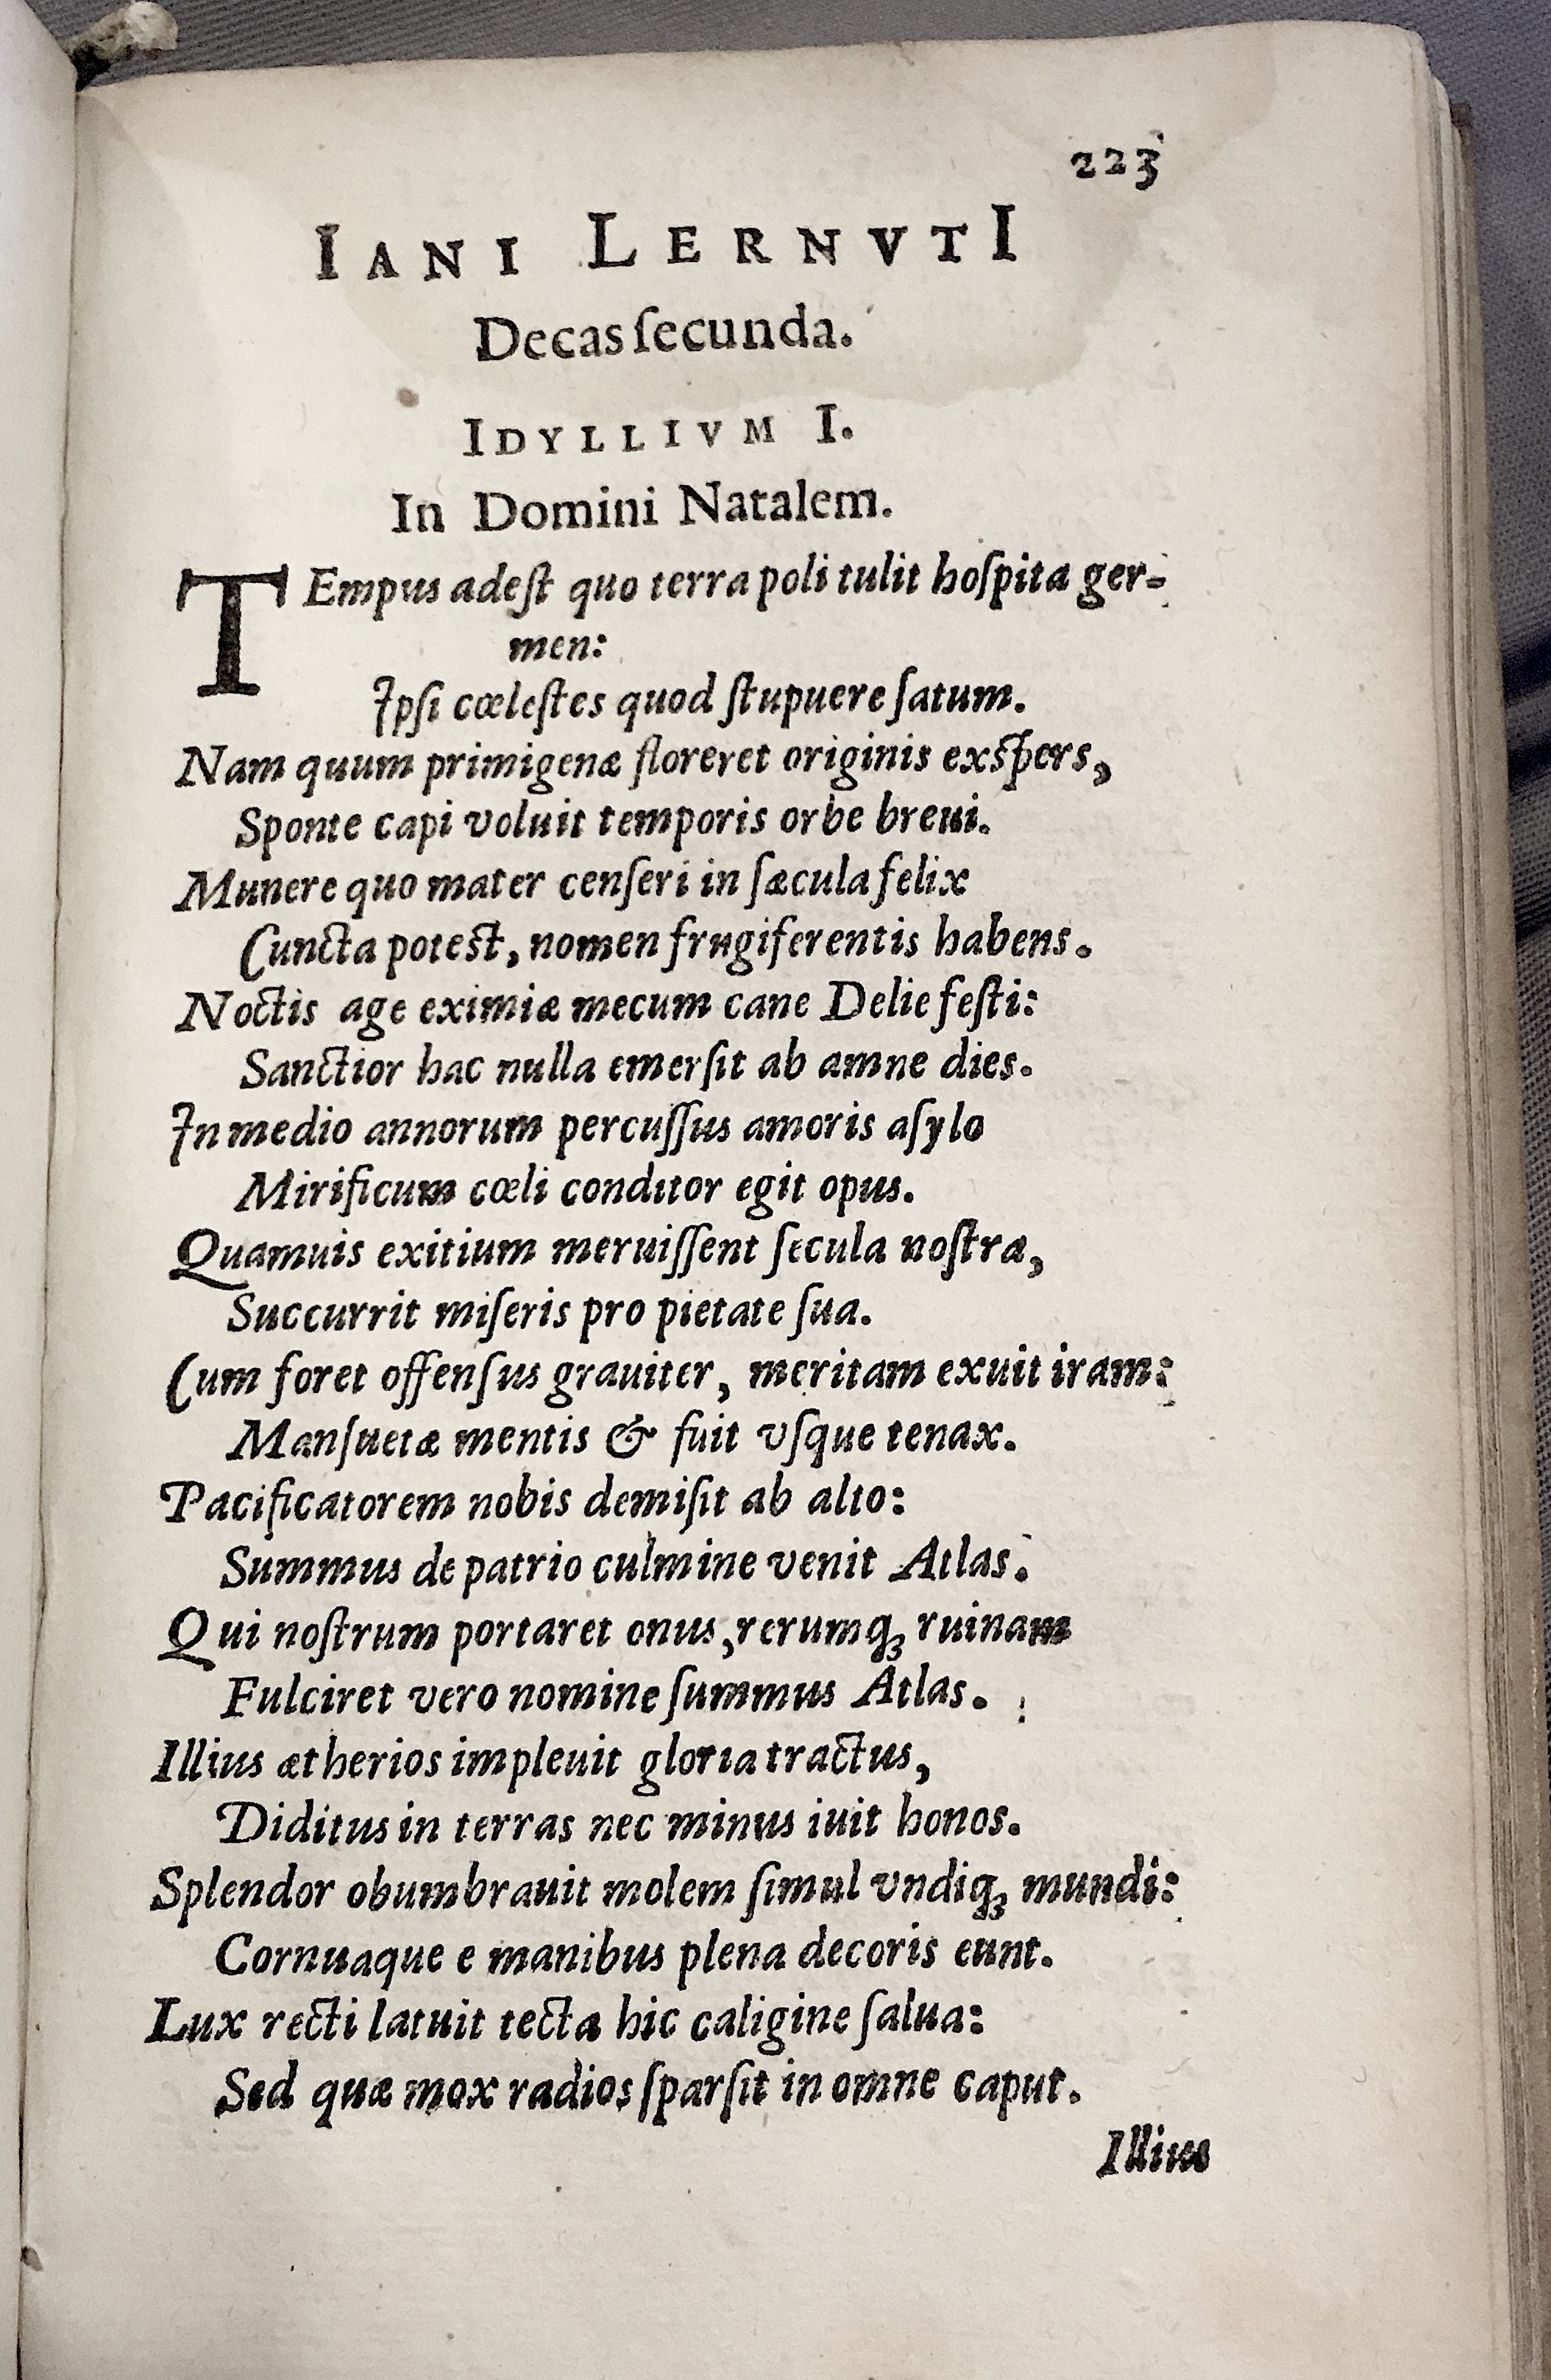 223
IANI LERNVTI
Decas ſecunda.
IDYLLIVM I.
In Domini Natalem.
TEmpus adeſt quo terra poli tulit hoſpita ger-
men:
Ipſi cœleſtes quod ſtupuere ſatum.
Nam quum primigenæ floreret originis exſpers,
Sponte capi voluit temporis orbe breui.
Munere quo mater cenſeri in ſæcula felix
Cuncta poteſt, nomen frugiferentis habens.
Noctis age eximiæ mecum cane Delie feſti:
Sanctior hac nulla emerſit ab amne dies.
In medio annorum percuſſus amoris aſylo
Mirificum cœli conditor egit opus.
Quamuis exitium meruiſſent ſecula noſtra,
Succurrit miſeris pro pietate ſua.
Cum foret offenſus grauiter, meritam exuit iram:
Manſuetæ mentis & fuit vſque tenax.
Pacificatorem nobis demiſit ab alto:
Summus de patrio culmine venit Atlas.
Qui noſtrum portaret onus, rerumq; ruinam
Fulciret vero nomine ſummus Atlas.
Illius ætherios impleuit gloria tractus,
Diditus in terras nec minus iuit honos.
Splendor obumbrauit molem ſimul vndiq; mundi:
Cornuaque e manibus plena decoris eunt.
Lux recti latuit tecta hic caligine ſalua:
Sed quæ mox radios ſparſit in omne caput.
Illius